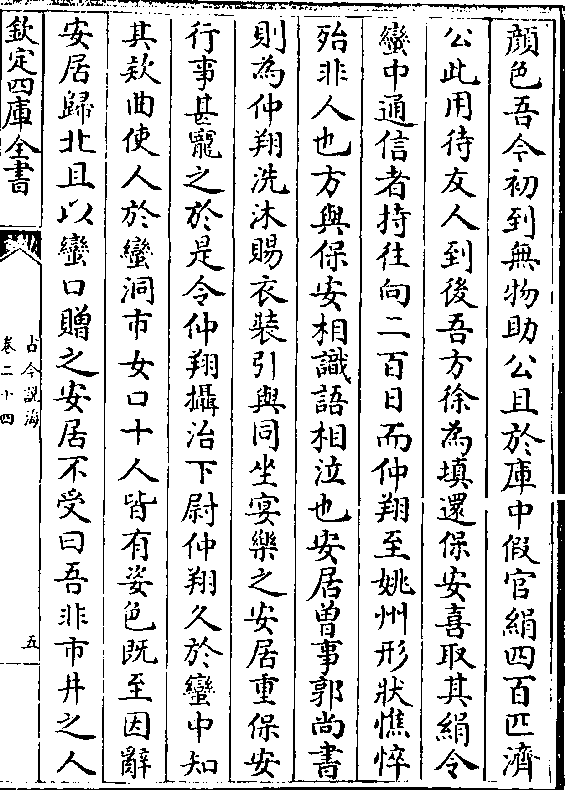 顔色吾今初到無物助公且於庫中假官絹四百匹濟
公此用待友人到後吾方徐為填還保安喜取其絹令
蠻中通信者持往向二百日而仲翔至姚州形狀憔悴
殆非人也方與保安相識語相泣也安居曾事郭尚書
則為仲翔洗沐賜衣裝引與同坐宴樂之安居重保安
行事甚寵之於是令仲翔攝治下尉仲翔久於蠻中知
其欵曲使人於蠻洞市女口十人皆有姿色既至因辭
安居歸北且以蠻口贈之安居不受曰吾非市井之人
欽定四庫全書
古今說海
卷二十四
五